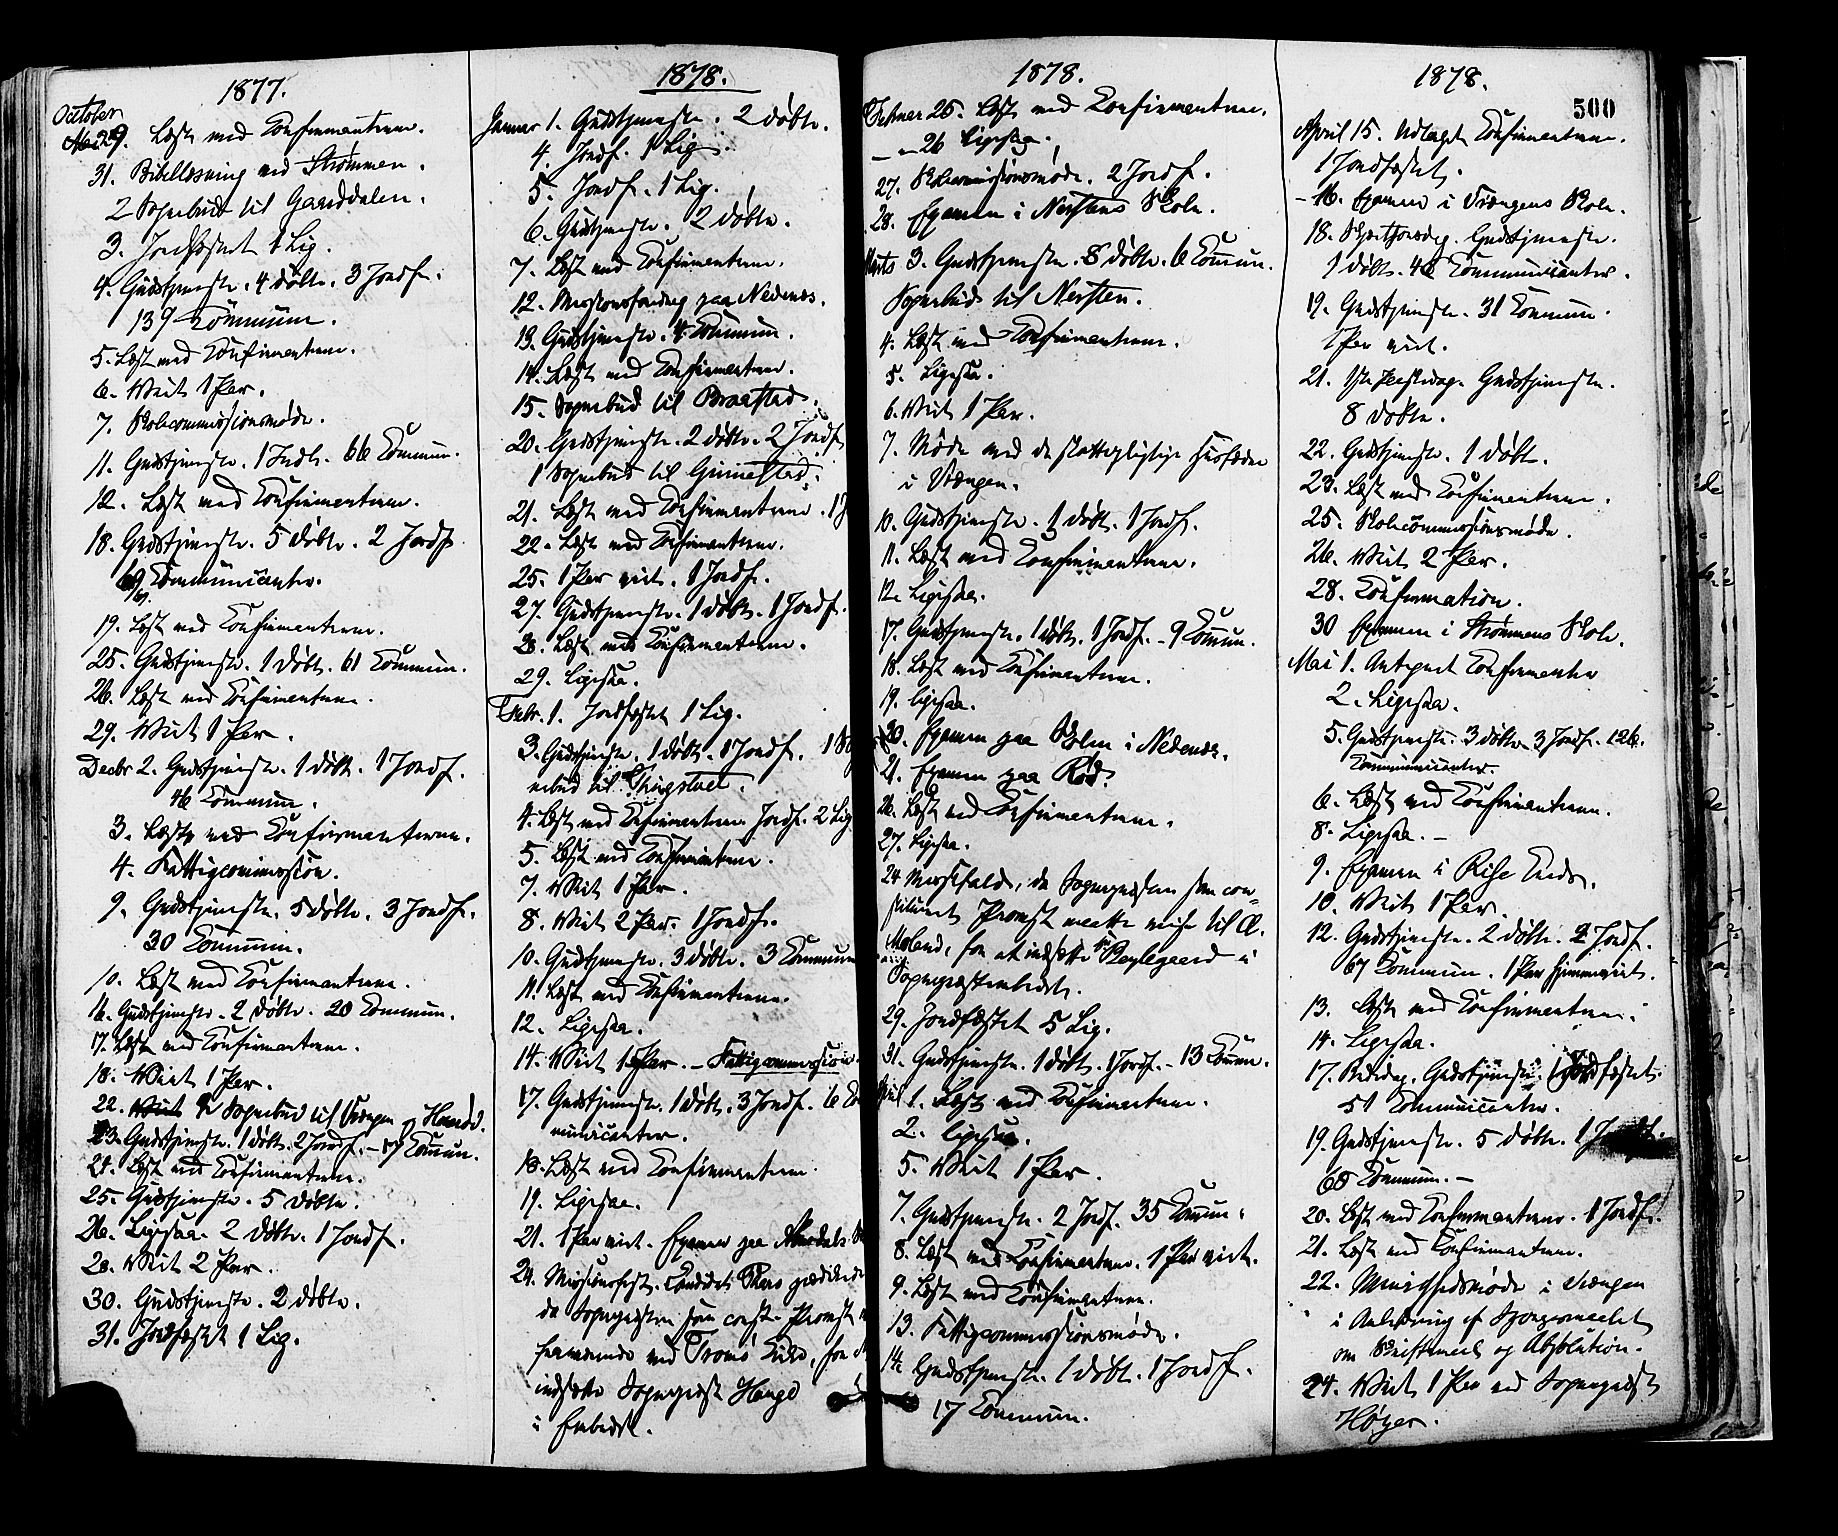 1877.
October
29. Læst med Confirmanterne.
31. Bibellæsning ved Strømmen.
2 Sognebud til Gaarddalen.
3. Jordfæstet 1 Lig.
4. Gudstjeneste. 4 døbte. 3 Jordf.
139 Commun.
5. Læst med Confirmanterne.
6. Viet 1 Par.
7. Skolecommissionsmøde.
11. Gudstjeneste. 1 Indl. 66 Commun.
12. Læst med Confirmanterne.
18. Gudstjeneste. 5 døbte. 2 Jordf.
69 Communicanter.
19. Læst med Confirmanterne.
25. Gudstjeneste. 1 døbt. 61 Commun.
26. Læst med Confirmanterne.
29. Viet 1 Par.
Decbr 2. Gudstjeneste. 1 døbt. 1 Jordf.
46 Commun.
3. Læst med Confirmanterne.
4. Fattigcommission.
9. Gudstjeneste. 5 døbte. 3 Jordf.
30 Commun.
10. Læst med Confirmanterne.
16. Gudstjeneste. 2 døbte. 20 Commun.
17. Læst med Confirmanterne.
18. Viet 1 Par.
22. Sognebud til
23. Gudstjeneste. 1 døbt. 2 Jordf. - 57 Commun.
24. Læst med Confirmanterne.
25. Gudstjeneste. 5 døbte.
26. Ligesaa. 2 døbte. 1 Jordf.
28. Viet 2 Par.
30. Gudstjeneste. 2 døbte.
31. Jordfæstet 1 Lig.
1878.
Januar 1. Gudstjeneste. 2 døbte.
4. Jordf. 1 Lig.
5. Jordf. 1 Lig.
6. Gudstjeneste. 2 døbte.
7. Læst med Confirmanterne.
12. Missionsforedrag paa Nedenes.
13. Gudstjeneste. 4 Commun.
14. Læst med Confirmanterne.
15. Sognebud til Braastad.
20. Gudstjeneste. 2 døbte. 2 Jordf
1 Sognebud til Gimmestad.
21. Læst med Confirmanterne. 1 J
22. Læst med Confirmanterne.
25. 1 Par viet. 1 Jordf.
27. Gudstjeneste. 1 døbt. 1 Jordf.
28. Læst med Confirmanterne.
29. Ligesaa.
Febr. 1. Jordfæstet 1 Lig.
3. Gudstjeneste. 1 døbt. 1 Jordf. 1 Sog
nebud til Thingstvet.
4. Læst med Confirmanterne. Jordf. 2 Lig
5. Læst med Confirmanterne.
7. Viet 1 Par.
8. Viet 2 Par. 1 Jordf.
10. Gudstjeneste. 3 døbte. 3 Commun
11. Læst med Confirmanterne.
12. Ligesaa.
14. Viet 1 Par. - Fattigcommission.
17. Gudstjeneste. 1 døbt. 3 Jordf. 6 Com
municanter.
18. Læst med Confirmanterne.
19. Ligesaa.
21. 1 Par viet. Examen paa
24. Missionsfest. Candidat prædikede
da Sognepresten som const. Provst
fraværende ved Tromø Kirke, for
indsætte Sognepræst Hauge
i Embedet.
1878.
Februar 25. Læst med Confirmanterne.
- " 26 Ligesaa.
27. Skolecommissionsmøde. 2 Jordf.
28. Examen i Nerstens Skole.
Marts 3. Gudstjeneste. 8 døbte. 6 Commun.
Sognebud til Nersten.
4. Læst med Confirmanterne.
5. Ligesaa.
6. Viet 1 Par.
7. Møde med de skattepligtige Husfædre
i Vrængen.
10. Gudstjeneste. 1 døbt. 1 Jordf.
11. Læst med Confirmanterne.
12. Ligesaa.
17. Gudstjeneste. 1 døbt. 1 Jordf. - 9 Commun.
18. Læst med Confirmanterne.
19. Ligesaa.
20. Examen paa Skolen i Nedenes.
21. Examen paa Rød.
26. Læst med Confirmanterne.
27. Ligesaa.
24 Messefald, da Sognepresten som con-
stitueret Provst maatte reise til Ø.
Moland, for at indsætte Beylegaard i
Sognepræstembedet.
29. Jordfæstet 5 Lig.
31. Gudstjeneste. 1 døbt. 1 Jordf. - 13 Commun.
April 1. Læst med Confirmanterne.
2. Ligesaa.
5. Viet 1 Par.
7. Gudstjeneste. 2 Jordf. 35 Commun.
8. Læst med Confirmanterne. 1 Par viet.
9. Læst med Confirmanterne.
13. Fattigcommissionsmøde.
14. Gudstjeneste. 1 døbt. 1 Jordf.
17 Commun.
1878.
500
April 15. Udlagt Confirmanterne.
1 Jordfæstet.
- 16. Examen i Vrængens Skole.
18. Skjærtorsdag. Gudstjeneste.
1 døbt. 46 Communicanter.
19. Gudstjeneste. 31 Commun.
1 Par viet.
21. 1ste Paaskedag. Gudstjeneste.
8 døbte.
22. Gudstjeneste. 1 døbt.
23. Læst med Confirmanterne.
25. Skolecommissionsmøde.
26. Viet 2 Par.
28. Confirmation.
30 Examen i Strømmens Skole.
Mai 1. Antegnet Confirmanter
2. Ligesaa.
5. Gudstjeneste. 3 døbte 3 Jordf. 126.
Communicanter.
6. Læst med Confirmanterne.
8. Ligesaa. -
9. Examen i Rise Kreds.
10. Viet 1 Par.
12. Gudstjeneste. 2 døbte. 2 Jordf.
67 Commun. 1 Par hjemmeviet.
13. Læst med Confirmanterne.
14. Ligesaa.
17. Bededag. Gudstjeneste. Jordfæstet.
51 Communicanter.
19. Gudstjeneste. 5 døbte. 1 Jordf.
60 Commun. -
20. Læst med Confirmanterne. 1 Jordf.
21. Læst med Confirmanterne.
22. Menighedsmøde i Vrængen
i Anledning af Spørgsmaalet
om Skriftemaal og Absolution.
24. Viet 1 Par ved Sognepræst
Høyer.